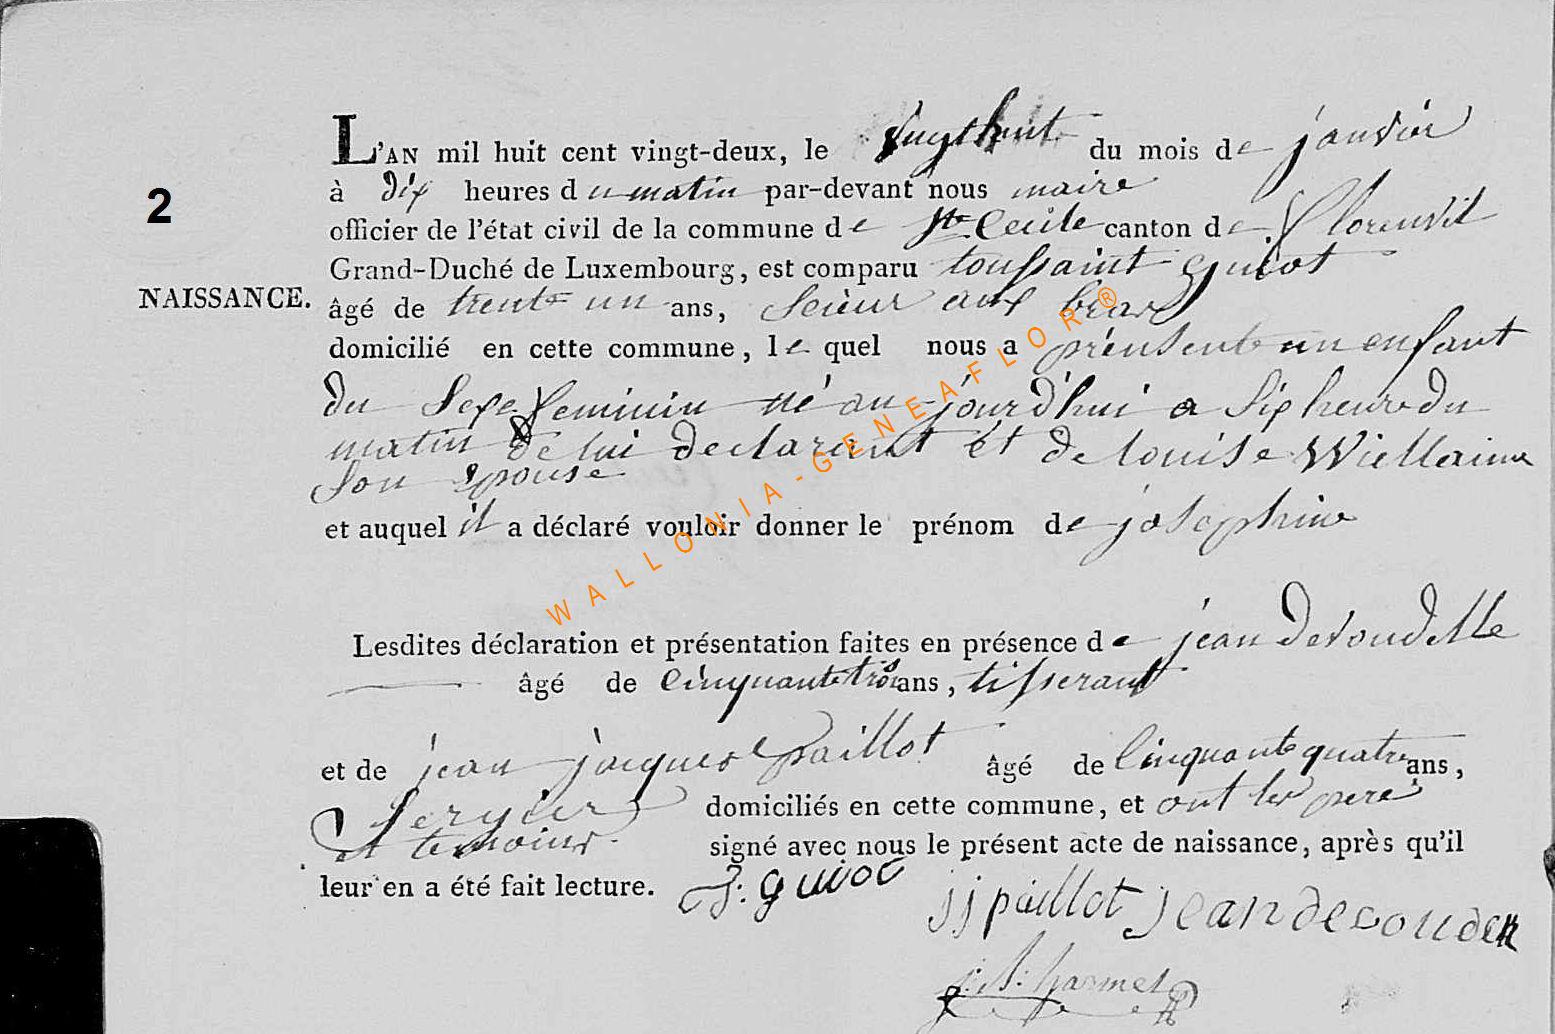 L'AN mil huit cent vingt-deux, le vingthuit du mois de janvier
2
à dix heures du matin par-devant nous maire
officier de l'état civil de la commune de Ste Cecile canton de florenvil
Grand-Duché de Luxembourg, est comparu toussaint guiot
NAISSANCE.
âgé de trente un ans, scieur aux bras
domicilié en cette commune, le quel nous a présenté un enfant
du sexe feminin né aujourd'hui a six heure du
matin de lui declarant et de louise Willaime
son epouse
et auquel il a déclaré vouloir donner le prénom de josephine
WALLONIA-GENEAFLOR®
Lesdites déclaration et présentation faites en présence de jean
âgé de cinquante trois ans, tisserant
et de jean jacques paillot âgé de cinquante quatre ans,
domiciliés en cette commune, et ont les pere
et temoins signé avec nous le présent acte de naissance, après qu'il
leur en a été fait lecture. T. guiot
jj paillot jean
harmel